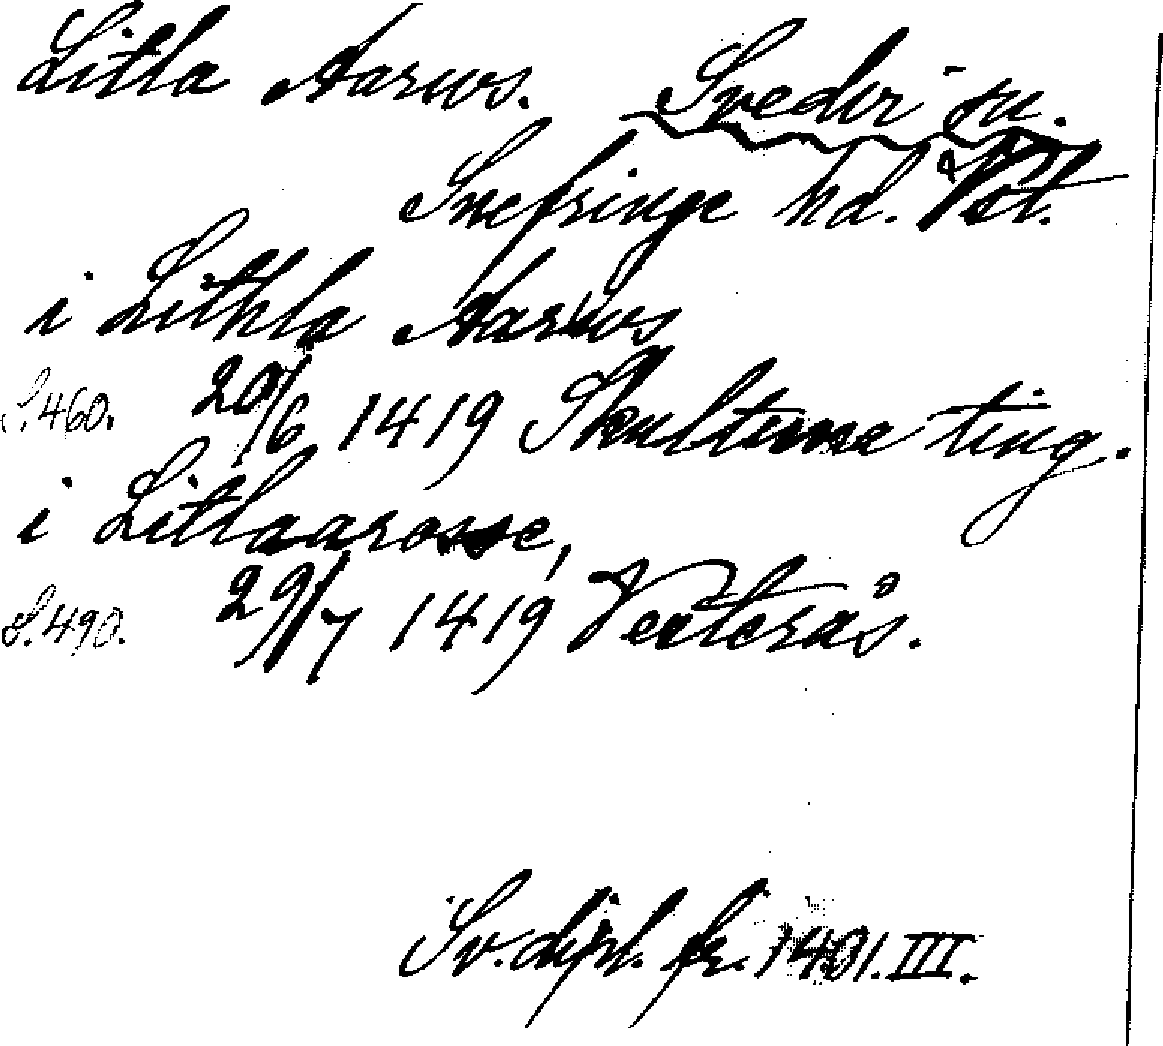 Litla Aarws. Svedvi sn.
Snefringe hd. Vstl.
i Lithla Aarws
S. 460. 20/6 1419 Skultuna ting.
i Litlaarosse,
S. 490. 29/7 1419 Vesterås.
Sv. dipl. fr. 1401. III.